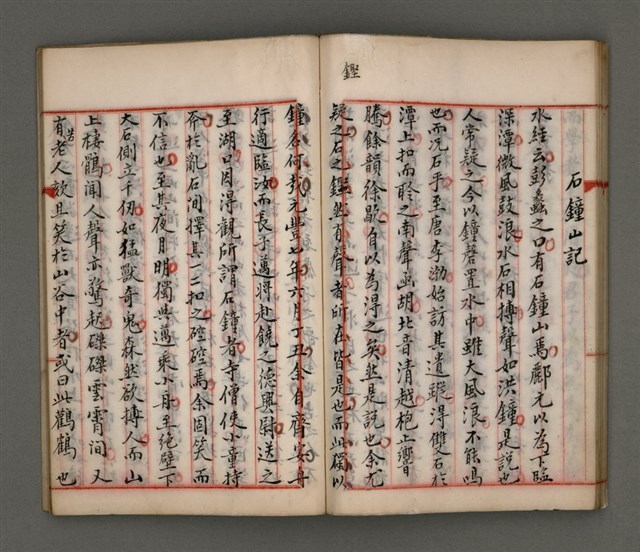 鏗
石鐘山記
水經云彭蠡之口有石鐘山焉酈元以為下臨
深潭微風鼓浪水石相搏聲如洪鐘是說也
人常疑之今以鐘磬置水中雖大風浪不能鳴
也而况石乎至唐李渤始訪其遺蹤得雙石於
潭上扣而聆之南聲函胡北音清越枹止響
騰餘韻徐歇自以為得之矣然是說也余尤
疑之石之鏗然有聲者所在皆是也而此獨以
鐘名何哉元豐七年六月丁丑余自齊安舟
行適臨汝而長子邁將赴饒之德興尉送之
至湖口因得觀所謂石鐘者寺僧使小童持
斧於亂石間擇其一二扣之硿硿焉余固笑而
不信也至其夜月明獨與邁乘小舟至絕壁下
大石側立千仞如猛獸奇鬼森然欲搏人而山
上棲鶻聞人聲亦驚起磔磔雲霄間又
有若老人欬且笑於山谷中者或曰此鸛鶴也